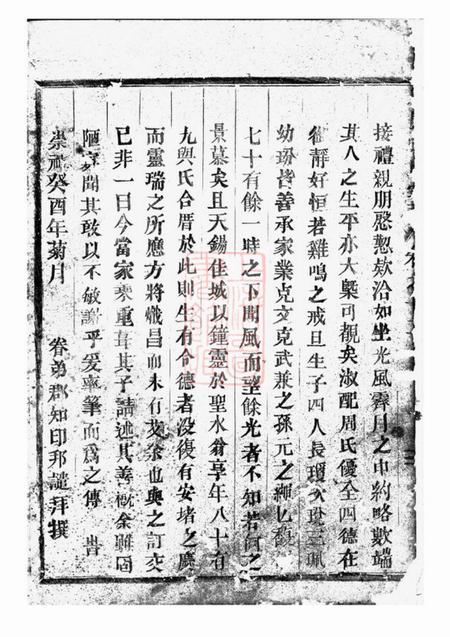 接禮親朋慇懃欵洽如坐光風霽月之中約略數端
其人之生平亦大槩可覩矣淑配周氏優全四德在
御靜好恒若雞鳴之戒旦生子四人長瑨次 三珮
幼 皆善承家業克文克武兼之孫元之繩
七十有餘一時之下聞風而望餘光者不知若何之
景慕矣且天錫佳城以鐘靈於聖水翁享年八十有
九與氏合厝於此則生有令德者沒復有安堵之慶
而靈瑞之所應方將熾昌而未有艾余也與之訂交
已非一日今當家乘重葺其子請述其善槪余雖固
陋 聞其敢以不敏謝乎爰率筆而爲之傳 旹
崇禎癸酉年菊月 眷弟郡知印邦謹拜撰